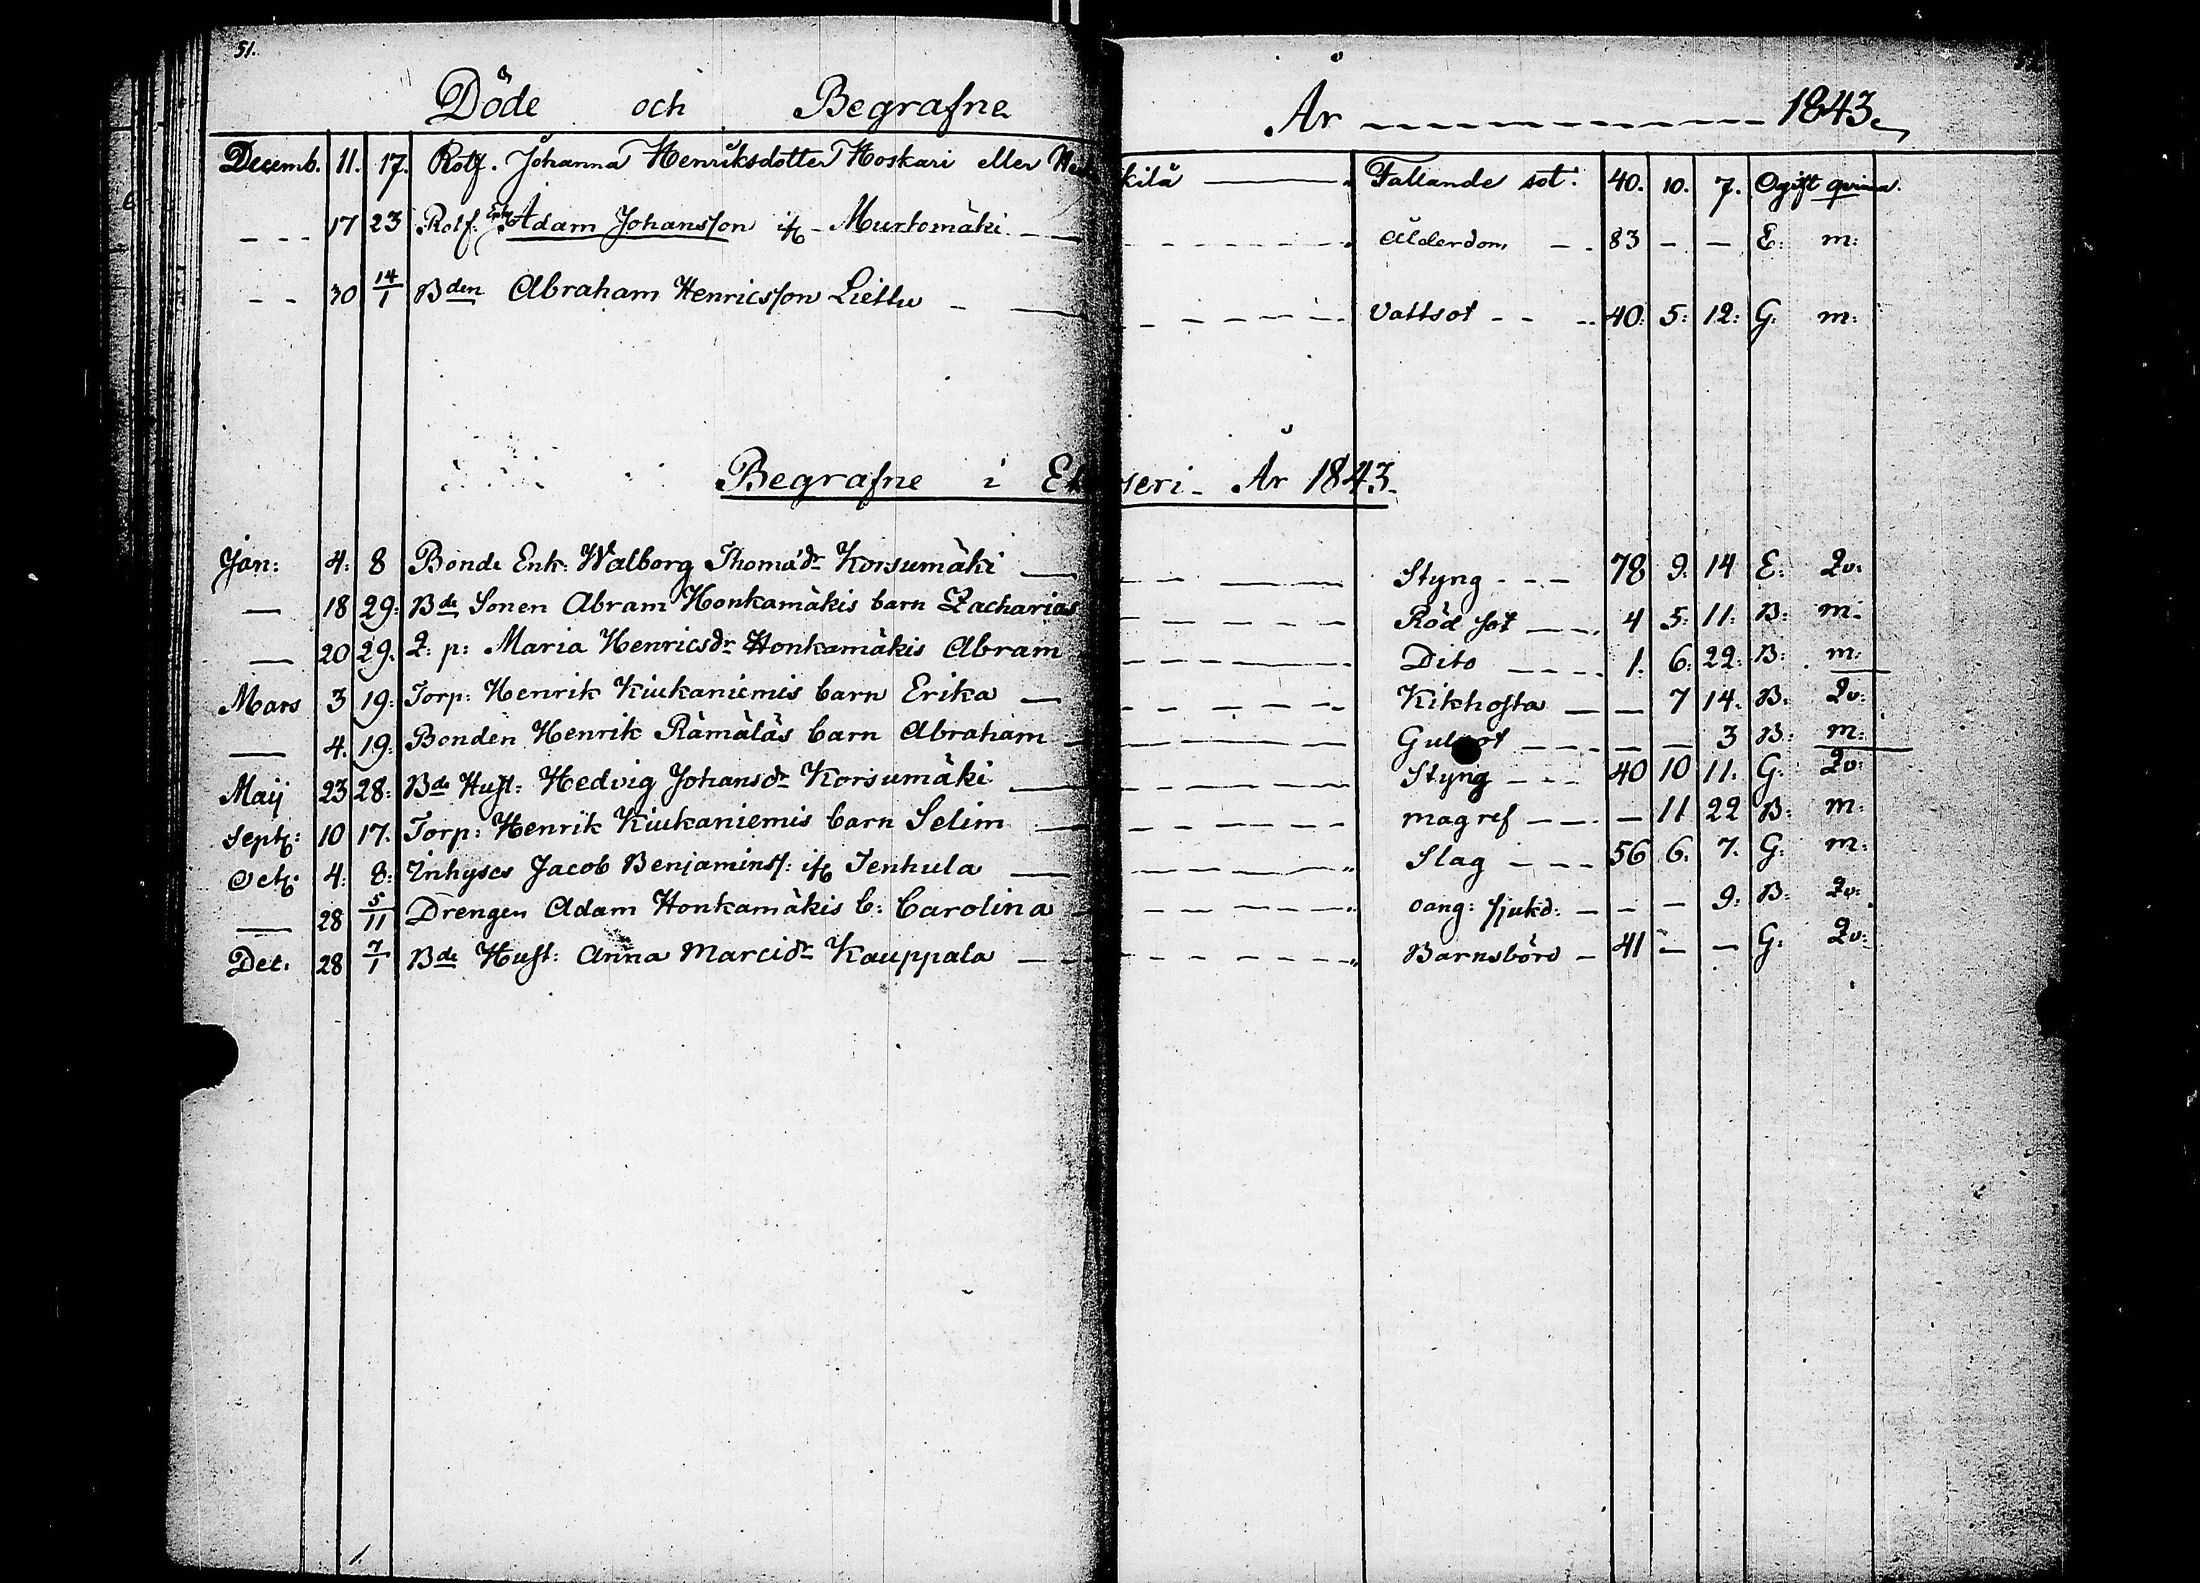 51.
Döde och Begrafne År 1843.
Decemb. 11. 17. Rotf. Johanna Henriksdotter Hoskari eller kilä Fallande sot. 40. 10. 7. Ogift qvinna.
17 23 Rotf. Enkl. Adam Johansson ifr. Murtomäki Ålderdom 83 - - E: m:
30 14/1 Bden Abraham Henricsson Liettu Vattsot 40: 5: 12: G: m:
Begrafne i Etseri År 1843.
Jan: 4: 8 Bonde Enk: Walborg Thomædr Korsumäki Styng 78 9. 14 E: Qv:
— 18 29: Bde Sonen Abram Honkamäkis barn Zacharias Röd sot 4 5: 11: B: m.
— 20 29. Q: p: Maria Henricsdr Honkamäkis Abram Dito 1. 6: 22: B: m:
Mars 3 19: Torp: Henrik Kiukaniemis barn Erika Kikhosta — 7 14. B: Qv:
— 4. 19. Bonden Henrik Rämäläs barn Abraham Gulsot — — 3 B: m:
Maij 23 28: Bde Hust: Hedvig Johansdr Korsumäki Styng 40 10 11. G: Qv:
Septb: 10 17. Torp: Henrik Kiukaniemis barn Selim magref — 11 22 B: m:
Octb: 4: 8: Inhyses Jacob Benjamins: ifr Tenhula Slag 56 6: 7. G: m:
— 28 5/11 Drengen Adam Honkamäkis b: Carolina oang: sjukd: — — 9. B: Qv:
Det. 28 7/1 Bde Hust: Anna Marcidr Kauppala Barnsbörd 41 — — G: Qv: